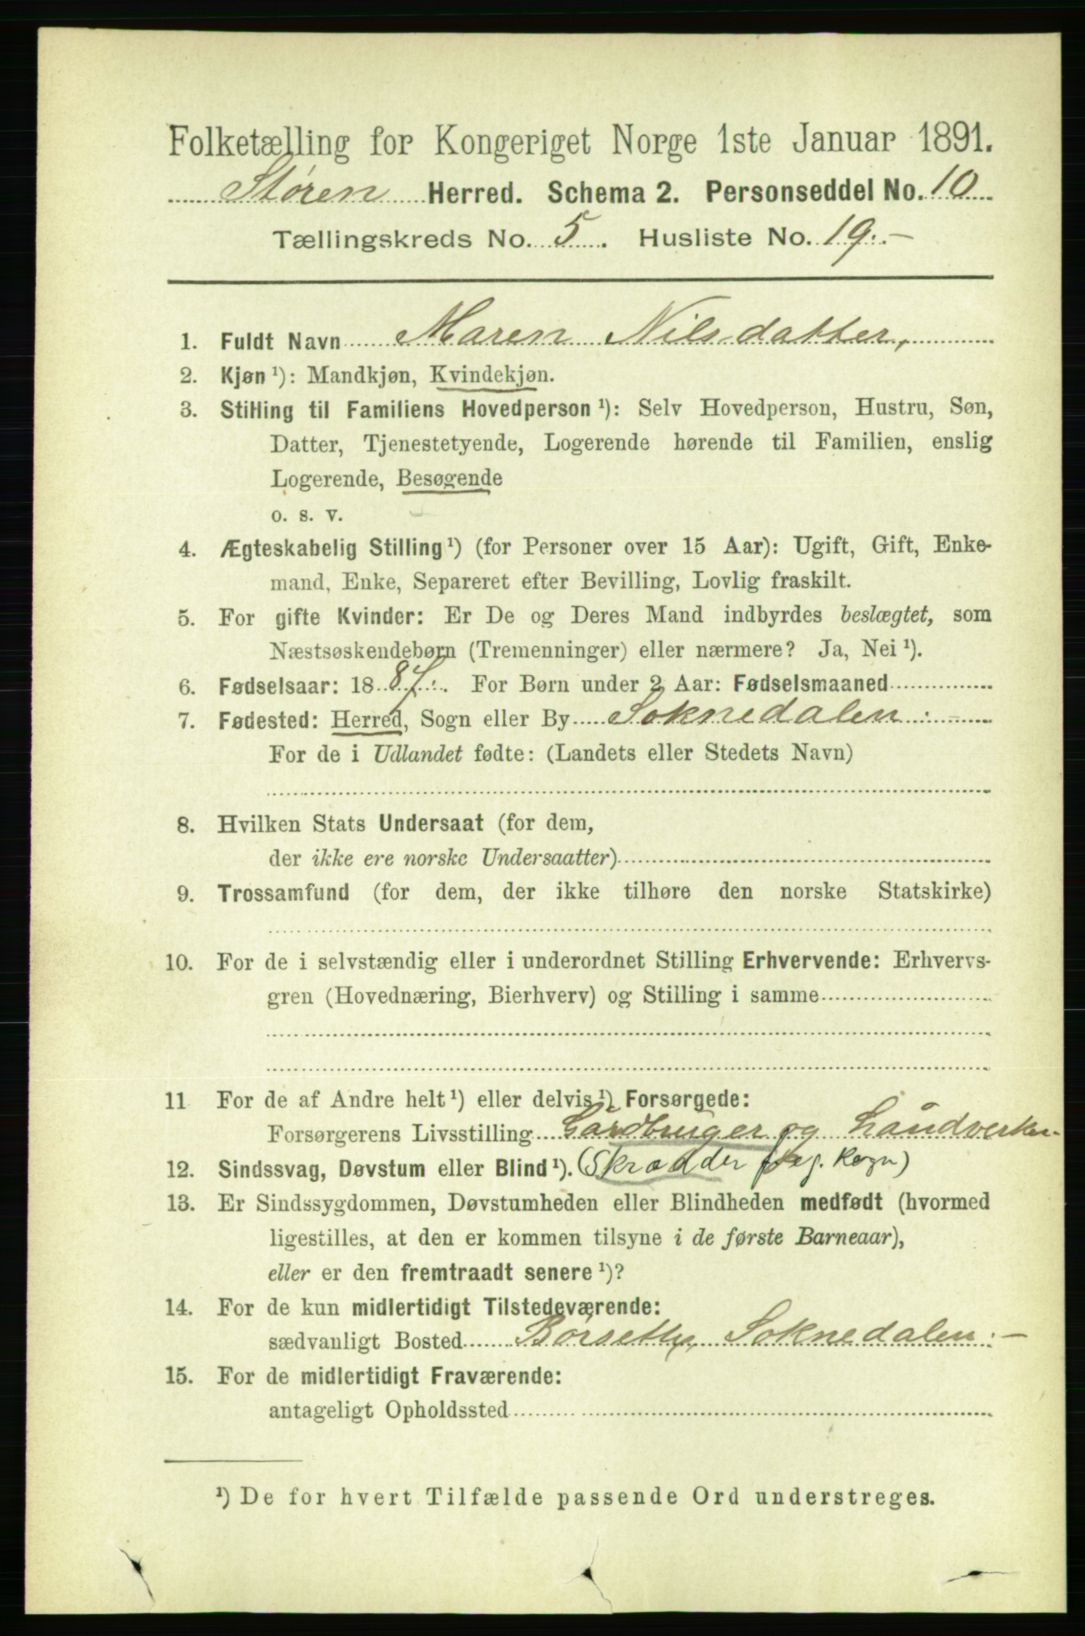 Folketælling for Kongeriget Norge 1ste Januar 1891.
Støren Herred. Schema 2. Personseddel No. 10
Tællingskreds No. 5. Husliste No. 19.-
1. Fuldt Navn Maren Nilsdatter,
2. Kjøn ¹): Mandkjøn, Kvindekjøn.
3. Stilling til Familiens Hovedperson ¹): Selv Hovedperson, Hustru, Søn,
Datter, Tjenestetyende, Logerende hørende til Familien, enslig
Logerende, Besøgende
o. s. v.
4. Ægteskabelig Stilling ¹) (for Personer over 15 Aar): Ugift, Gift, Enke-
mand, Enke, Separeret efter Bevilling, Lovlig fraskilt.
5. For gifte Kvinder: Er De og Deres Mand indbyrdes beslægtet, som
Næstsøskendebørn (Tremenninger) eller nærmere? Ja, Nei ¹).
6. Fødselsaar: 18 87. For Børn under 2 Aar: Fødselsmaaned
7. Fødested: Herred, Sogn eller By Soknedalen.-
For de i Udlandet fødte: (Landets eller Stedets Navn)
8. Hvilken Stats Undersaat (for dem,
der ikke ere norske Undersaatter)
9. Trossamfund (for dem, der ikke tilhøre den norske Statskirke)
10. For de i selvstændig eller i underordnet Stilling Erhvervende: Erhvervs-
gren (Hovednæring, Bierhverv) og Stilling i samme
11 For de af Andre helt ¹) eller delvis ¹) Forsørgede:
Forsørgerens Livsstilling Gårdbruger og Håndverker.
12. Sindssvag, Døvstum eller Blind ¹). (Skrædder f. Regn)
13. Er Sindssygdommen, Døvstumheden eller Blindheden medfødt (hvormed
ligestilles, at den er kommen tilsyne i de første Barneaar),
eller er den fremtraadt senere ¹)?
14. For de kun midlertidigt Tilstedeværende:
sædvanligt Bosted Børsetby Soknedalen.-
15. For de midlertidigt Fraværende:
antageligt Opholdssted
¹) De for hvert Tilfælde passende Ord understreges.